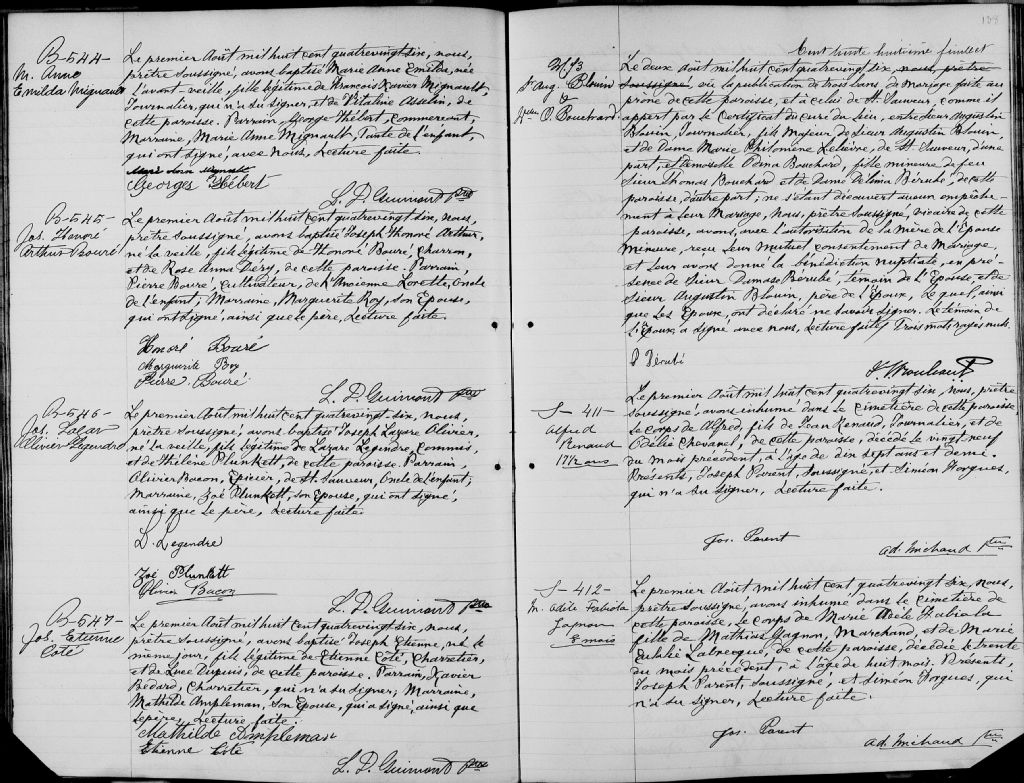 B-544-
M. Anne
Emilda Mignault
Le premier Août mil huit cent quatrevingt-six, nous,
prêtre soussigné, avons baptisé Marie Anne Emilda, née
l'avant-veille, fille légitime de François Xavier Mignault,
Journalier, qui n'a su signer, et de Vitaline Asselin, de
cette paroisse. Parrain, George Hébert, commercant,
Marraine, Marie Anne Mignault, Tante de l'enfant,
qui ont signé, avec nous, Lecture faite
Georges Hébert
L. D. Guimont Ptre
B-545-
Jos. Honoré
Arthur Bouré
Le premier Août mil huit cent quatrevingt six, nous,
prêtre soussigné, avons baptisé Joseph Honoré Arthur,
né la veille, fils légitime de Honoré Bouré, Charron,
et de Rose Anna Déry, de cette paroisse. Parrain,
Pierre Bouré, Cultivateur, de l'Ancienne Lorette, Oncle
de l'enfant; Marraine, Marguerite Roy, son Epouse,
qui ont signé, ainsi que le père, Lecture faite.
Honoré Bouré
Marguerite Roy
Pierre Bouré
L. D. Guimont Ptre
B-546-
Jos. Lazar
Ollivier Legendre
Le premier Août mil huit cent quatrevingt-six, nous,
prêtre soussigné, avons baptisé Joseph Lazare Olivier,
né la veille, fils légitime de Lazare Legendre, Commis,
et de Hélène Plunkett, de cette paroisse. Parrain,
Olivier Bacon, Epicier, de St. Sauveur, Oncle de l'enfant;
Marraine, Zoé Plunkett, son Epouse, qui ont signé,
ainsi que le père, Lecture faite.
L. Legendre
Zoé Plunkett
Olivier Bacon
L. D. Guimont Ptre
B-547-
Jos. Etienne
Coté
Le premier Août mil huit cent quatrevingt six, nous,
prêtre soussigné, avons baptisé Joseph Etienne, né le
même jour, fils légitime de Etienne Côté, Charretier,
et de Luce Dupuis, de cette paroisse. Parrain, Xavier
Bédard, Charretier, qui n'a su signer; Marraine,
Mathilde Ampleman, son Epouse, qui a signé, ainsi que
le père, Lecture faite.
Mathilde Ampleman
Etienne Coté
L. D. Guimont Ptre
138
Cent trente huitième feuillet
M-73
Aug. Blouin
&
O. Bouchard
Le deux Août mil huit cent quatrevingt six, nous, prêtre
soussigné, vu la publication de trois bans de mariage faite au
prône de cette paroisse, et à celui de St. Sauveur, comme il
appert par le Certificat du curé du lieu, entre Sieur Augustin
Blouin, Journalier, fils Majeur de Sieur Augustin Blouin
et de Dame Marie Philomène Lelièvre, de St. Sauveur, d'une
part, et Demoiselle Odina Bouchard, fille mineure de feu
Sieur Thomas Bouchard et de Dame Délima Bérubé, de cette
paroisse, d'autre part; ne s'étant découvert aucun empêche-
ment à leur Mariage, Nous, prêtre soussigné, vicaire de cette
paroisse, avons, avec l'autorisation de la Mère de l'Epouse
Mineure, reçu leur mutuel consentement de Mariage,
et leur avons donné la bénédiction nuptiale, en pré-
sence de Sieur Damase Bérubé, témoin de l'Epouse, et de
Sieur Augustin Blouin, père de l'Epoux, Le quel, ainsi
que les Epoux, ont déclaré ne savoir signer. Le témoin de
l'Epoux a signé avec nous, Lecture faite / Trois mots rayés nuls.
D Bérubé
S-411-
Alfred
Renaud
17½ ans
Le premier Août mil huit cent quatrevingt six, nous, prêtre
soussigné, avons inhumé dans le cimetière de cette paroisse,
le corps de Alfred, fils de Jean Renaud, Journalier, et de
Odélie Chevanel, de cette paroisse, décédé le vingt-neuf
du mois précédent, à l'âge de dix sept ans et demi.
Présents, Joseph Parent, soussigné, et Siméon Forgues,
qui n'a su signer, Lecture faite.
Jos. Parent
Ad. Michaud Ptre
S-412-
M. Adèle Fabiola
Gagnon
8 mois
Le premier Août mil huit cent quatrevingt six, nous,
prêtre soussigné, avons inhumé dans le cimetière de
cette paroisse, le corps de Marie Adèle Fabiola
fille de Mathias Gagnon, Marchand, et de Marie
Labrecque, de cette paroisse, décédée le trente
du mois précédent, à l'âge de huit mois. Présents,
Joseph Parent, soussigné, et Siméon Forgues, qui
n'a su signer, Lecture faite.
Jos. Parent
Ad. Michaud Ptre